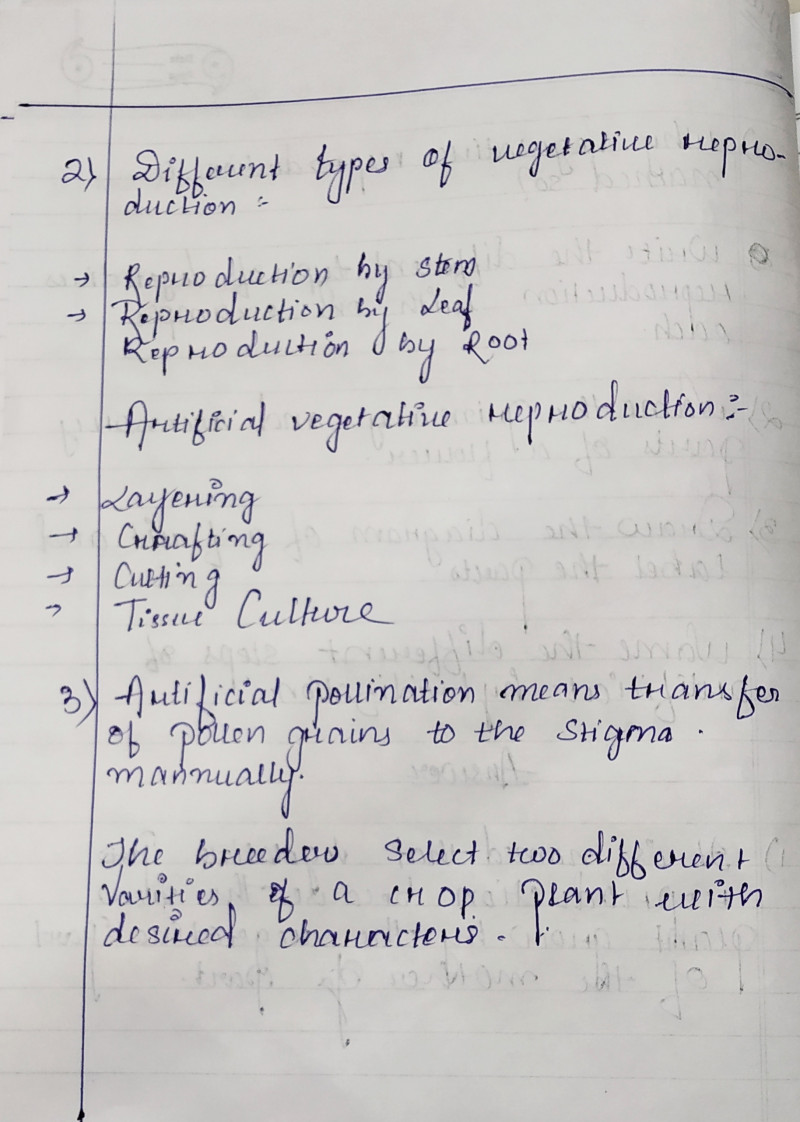 2) Different types of vegetative repro-
duction :-
→ Reproduction by stem
→ Reproduction by Leaf
Reproduction by Root
Artificial vegetative reproduction :-
→ Layering
→ Grrafting
→ Cutting
→ Tissue Culture
3) Artificial pollination means transfer
of pollen grains to the stigma .
mannually.
The breeders select two different
varities of a crop plant with
desired characters.